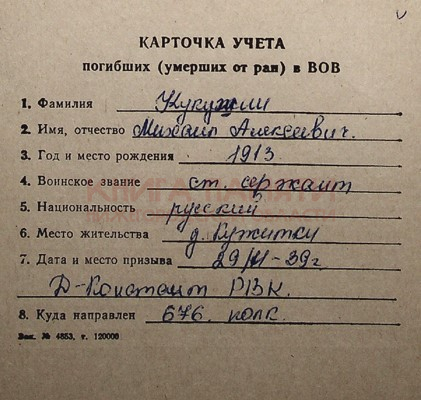 КАРТОЧКА УЧЕТА
погибших (умерших от ран) в ВОВ
1. Фамилия
2. Имя, отчество Михаил Алексеевич.
3. Год и место рождения 1913.
4. Воинское звание ст. сержант
5. Национальность русский
6. Место жительства д. Кужутки
7. Дата и место призыва 29/XI-39г
Д-Констант РВК.
8. Куда направлен 676. полк.
Зак. № 4853, т. 120000